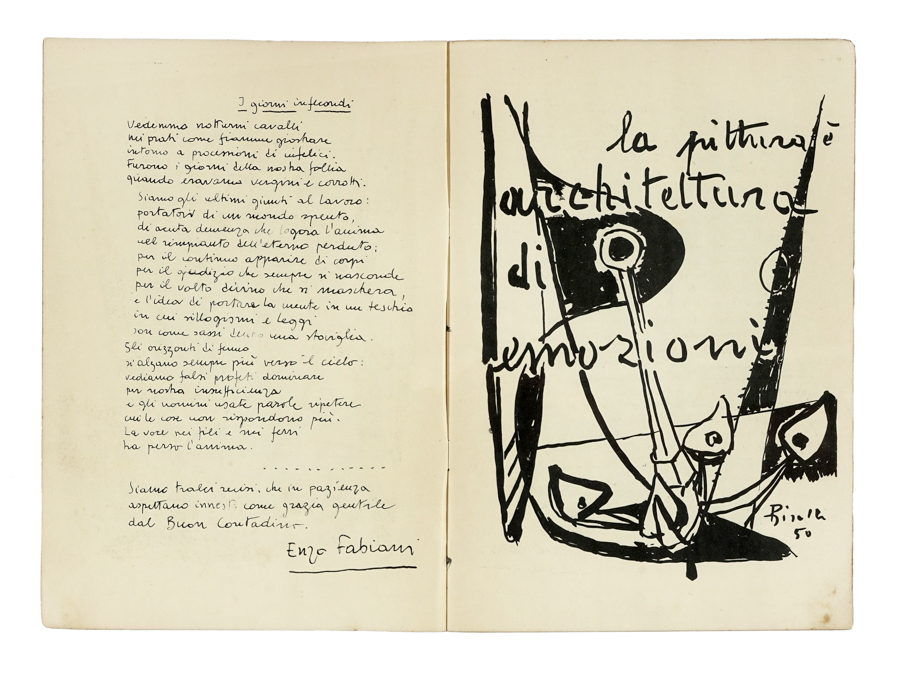 I giorni infecondi
Vedemmo notturni cavalli
nei prati come fiamme giostrare
intorno a processioni di infelici.
Furono i giorni della nostra follia
quando eravamo vergini e corrotti.
Siamo gli ultimi giunti al lavoro:
portatori di un mondo spento,
di acuta demenza che logora l'anima
nel rimpianto dell'eterno perduto;
per il continuo apparire di corpi
per il giudizio che sempre si nasconde
per il volto divino che si maschera,
e l'idea di portare la mente in un teschio
in cui sillogismi e leggi
son come sassi dentro una stoviglia.
Gli orizzonti di fumo
si alzano sempre più verso il cielo:
vediamo falsi profeti dominare
per nostra insufficienza
e gli uomini usate parole ripetere
cui le cose non rispondono più.
La voce nei fili e nei ferri
ha perso l'anima.
Siamo tralci recisi, che in pazienza
aspettano innesti come grazia gentile
dal Buon Contadino.
Enzo Fabiani
la pittura è
architettura
di
emozioni
Birolli
50